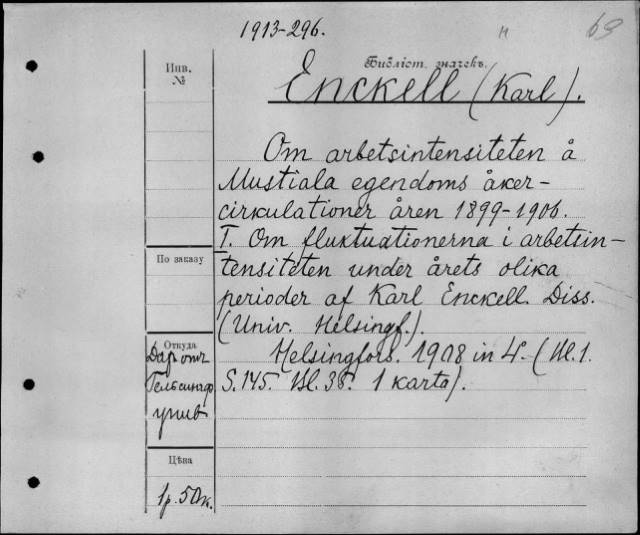 1913-296.
н
69
Инв.
№
Библіот. значекъ.
Enckell (Karl).
Om arbetsintensiteten å
Mustiala egendoms åker-
cirkulationer åren 1899-1906.
I. Om fluktuationerna i arbetsin-
По заказу
tensiteten under årets olika
perioder af Karl Enckell. Diss.
(Univ. Helsingf.).
Откуда
Helsingfors. 1908 in 4. (Bl. 1.
Даръ отъ
S. 145. Bl. 38. 1 karta).
Гельсингф
унив
Цѣна
1р. 50к.